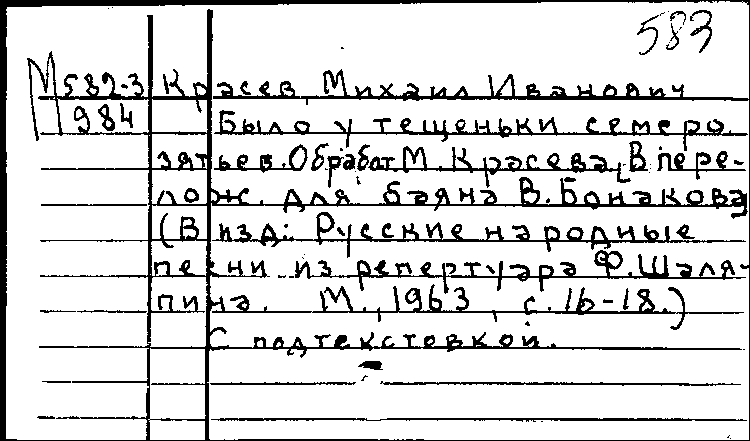 583
М582-3 Красев, Михаил Иванович
984 Было у тещеньки семеро
зятьев. Обработ. М. Красева, [В пере-
лож. для баяна В. Бонакова]
(В изд.: Русские народные
песни из репертуара Ф. Шаля-
пина. М., 1963, с. 16-18.)
С подтекстовкой.